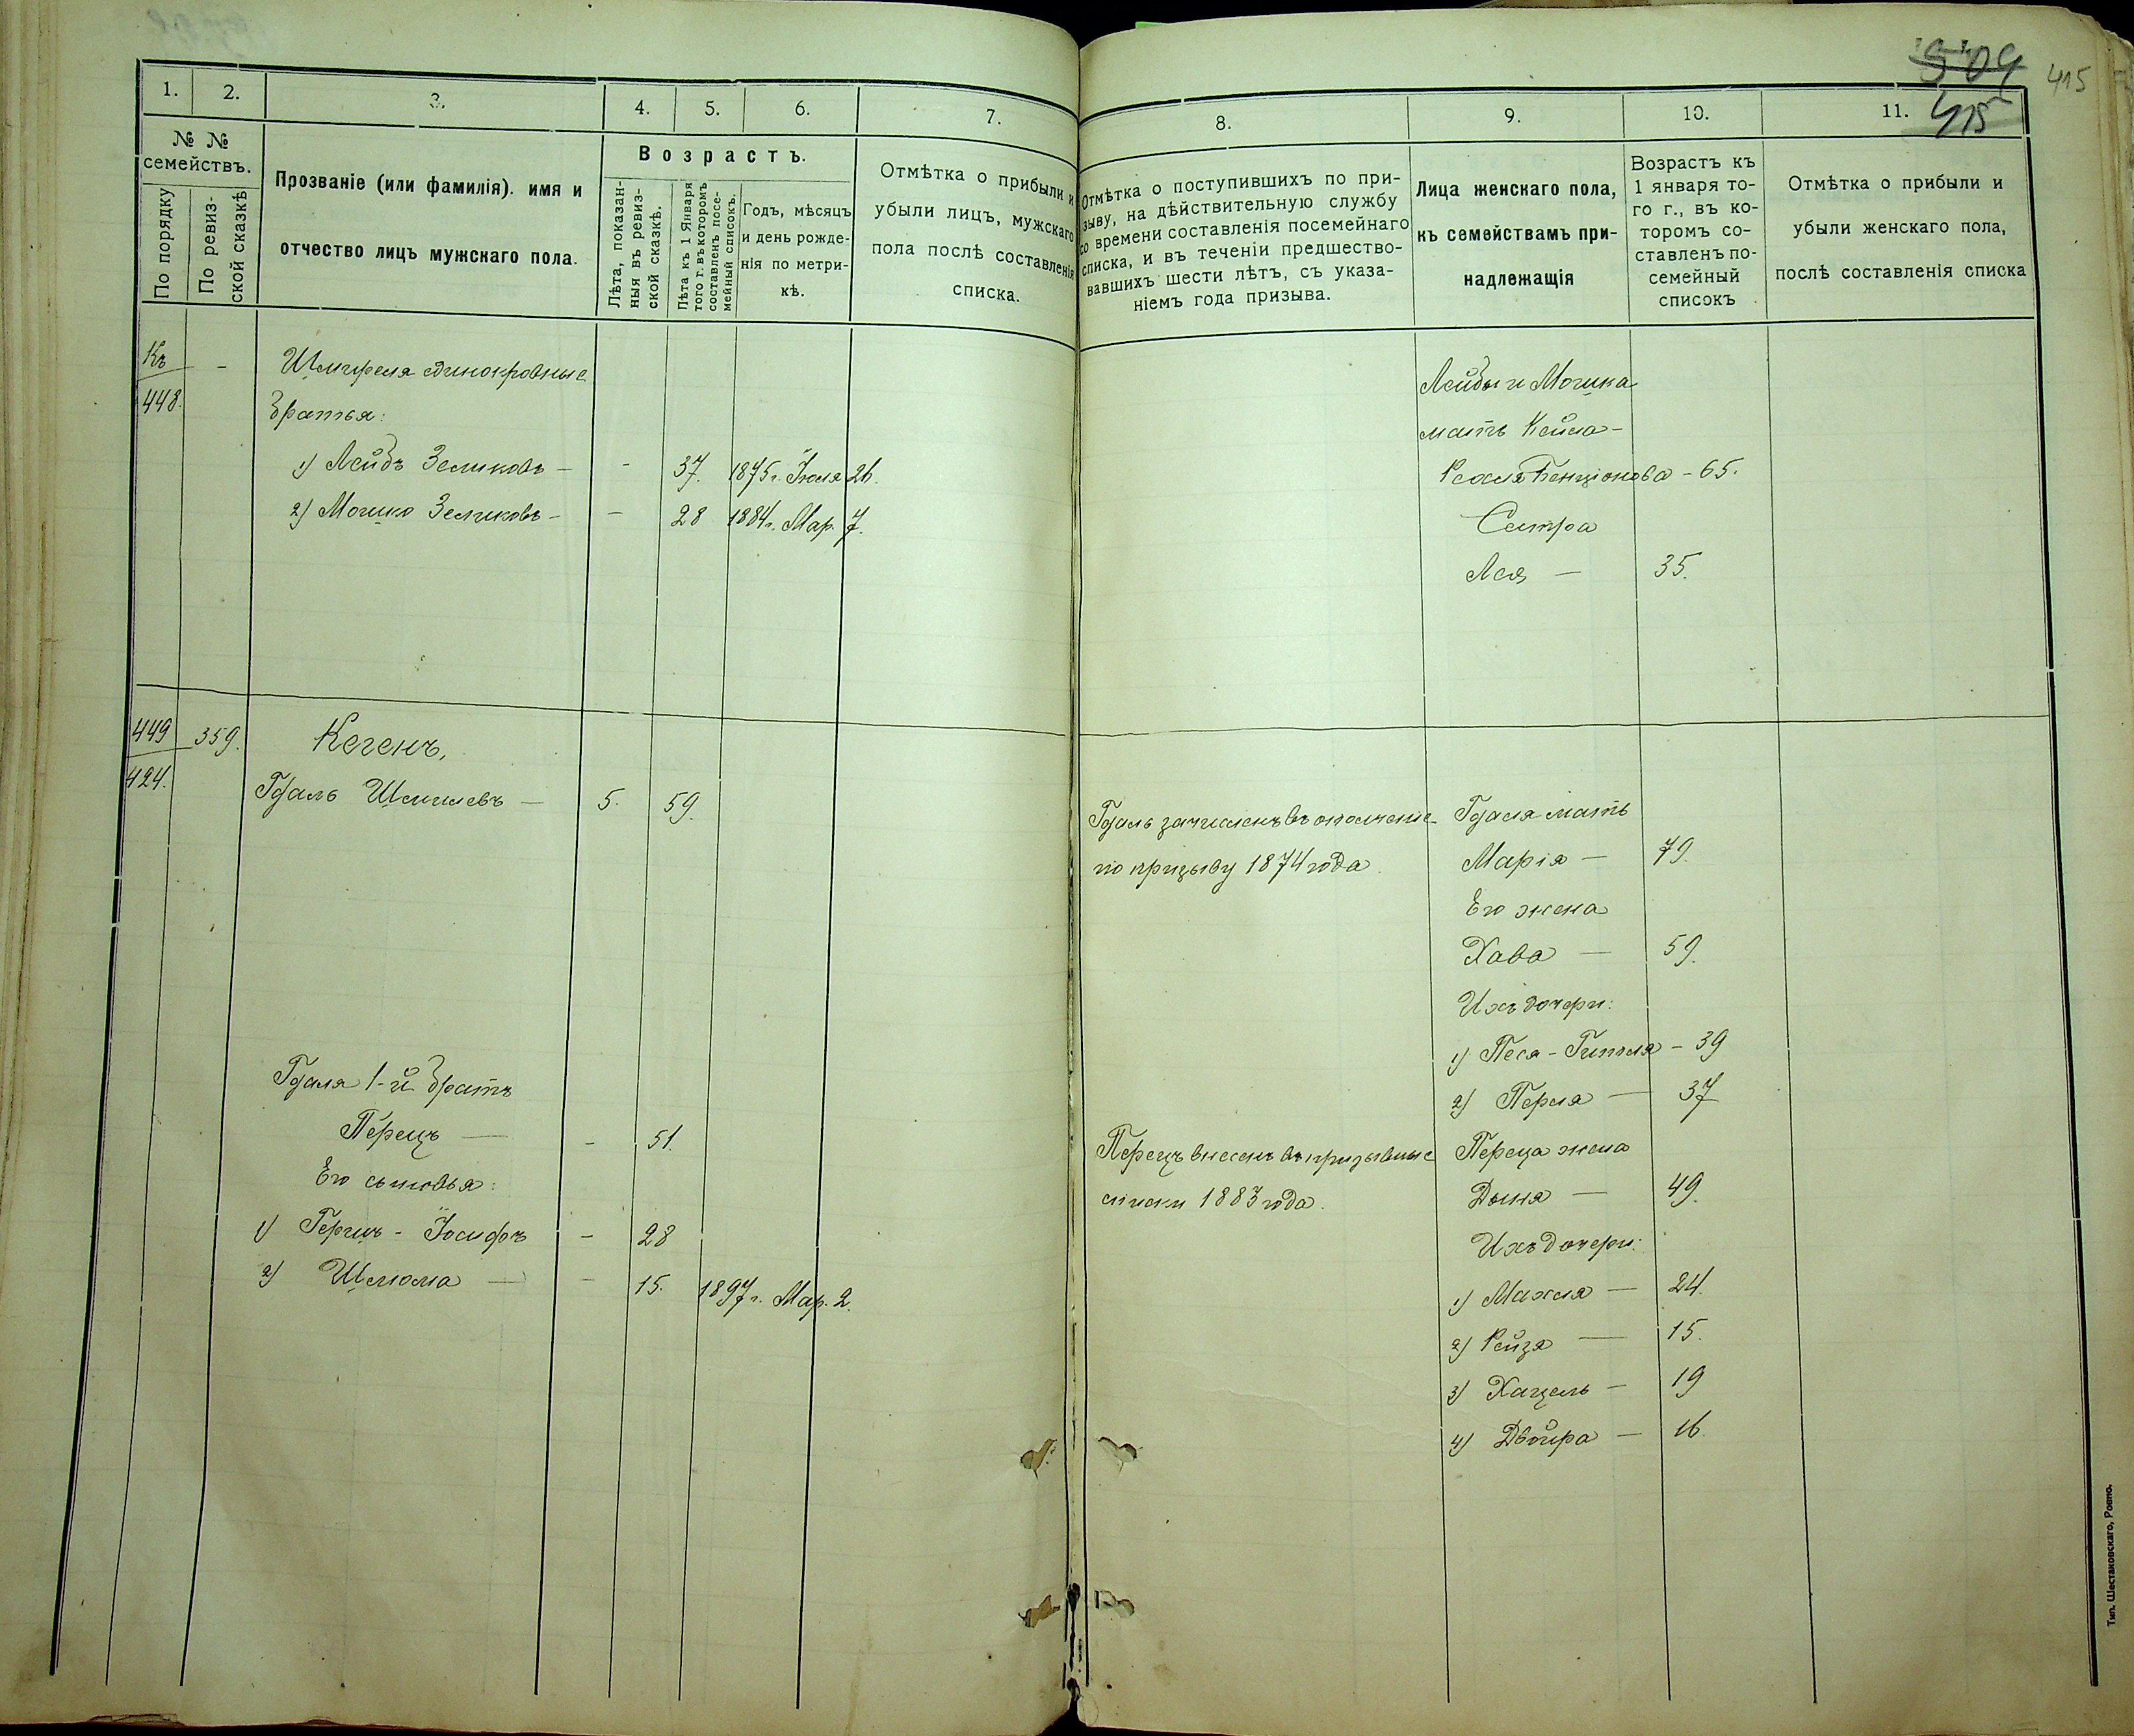 509 415
415
1. 2. 3. 4. 5. 6. 7.
№ №
семействъ.
По порядку
По ревиз-
ской сказкѣ
Прозваніе (или фамилія). имя и
отчество лицъ мужскаго пола.
Возрастъ.
Лѣта, показан-
ныя въ ревиз-
ской сказкѣ.
Лѣта къ 1 Января
того г. въ которомъ
составленъ посе-
мейный списокъ.
Годъ, мѣсяцъ
и день рожде-
нія по метри-
кѣ.
Отмѣтка о прибыли и
убыли лицъ, мужскаго
пола послѣ составленія
списка.
Къ
448. -
Шмиреля единокровные
братья:
1) Лейбъ Зеликовъ - - 37. 1875 г. Іюля 26.
2) Мошко Зеликовъ - - 28 1884 г. Мар. 7.
449
424. 359.
Кегенъ,
Гдаль Шмилевъ - 5. 59.
Гдаля 1-й братъ
Перецъ - - 51.
Его сыновья:
1) Гершъ-Іосифъ - 28
2) Шлюма - - 15. 1897 г. Мар. 2.
8. 9. 10. 11.
Отмѣтка о поступившихъ по при-
зыву, на дѣйствительную службу
со времени составленія посемейнаго
списка, и въ теченіи предшество-
вавшихъ шести лѣтъ, съ указа-
ніемъ года призыва.
Лица женскаго пола,
къ семействамъ при-
надлежащія
Возрастъ къ
1 января то-
го г., въ ко-
торомъ со-
ставленъ по-
семейный
списокъ
Отмѣтка о прибыли и
убыли женскаго пола,
послѣ составленія списка
Лейбы и Мошка
мать Кейла-
Рехля Бенціонова - 65.
Сестра
Лея - 35.
Гдаль зачисленъ въ ополченіе
по призыву 1874 года.
Гдаля мать
Марія - 79.
Его жена
Хава - 59.
Ихъ дочери:
1) Песя-Гитля - 39
2) Перля - 37
Перецъ внесенъ въ призывные
списки 1883 года.
Переца жена
Двыня - 49.
Ихъ дочери:
1) Махля - 24.
2) Рейзя - 15.
3) Хацель - 19
4) Двойра - 16
Тип. Шестаковскаго, Ровно.